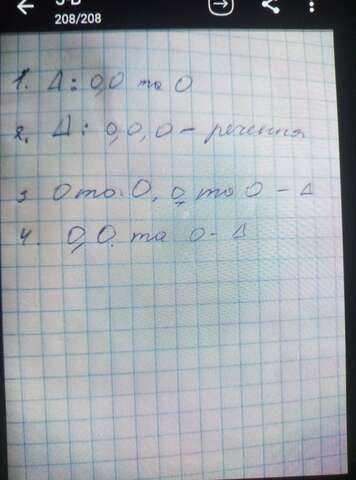 5-В
208/208
1. Δ: O, O та O
2. Δ: O, O, O – речення
3 O та O, O та O – Δ
4. O, O та O - Δ